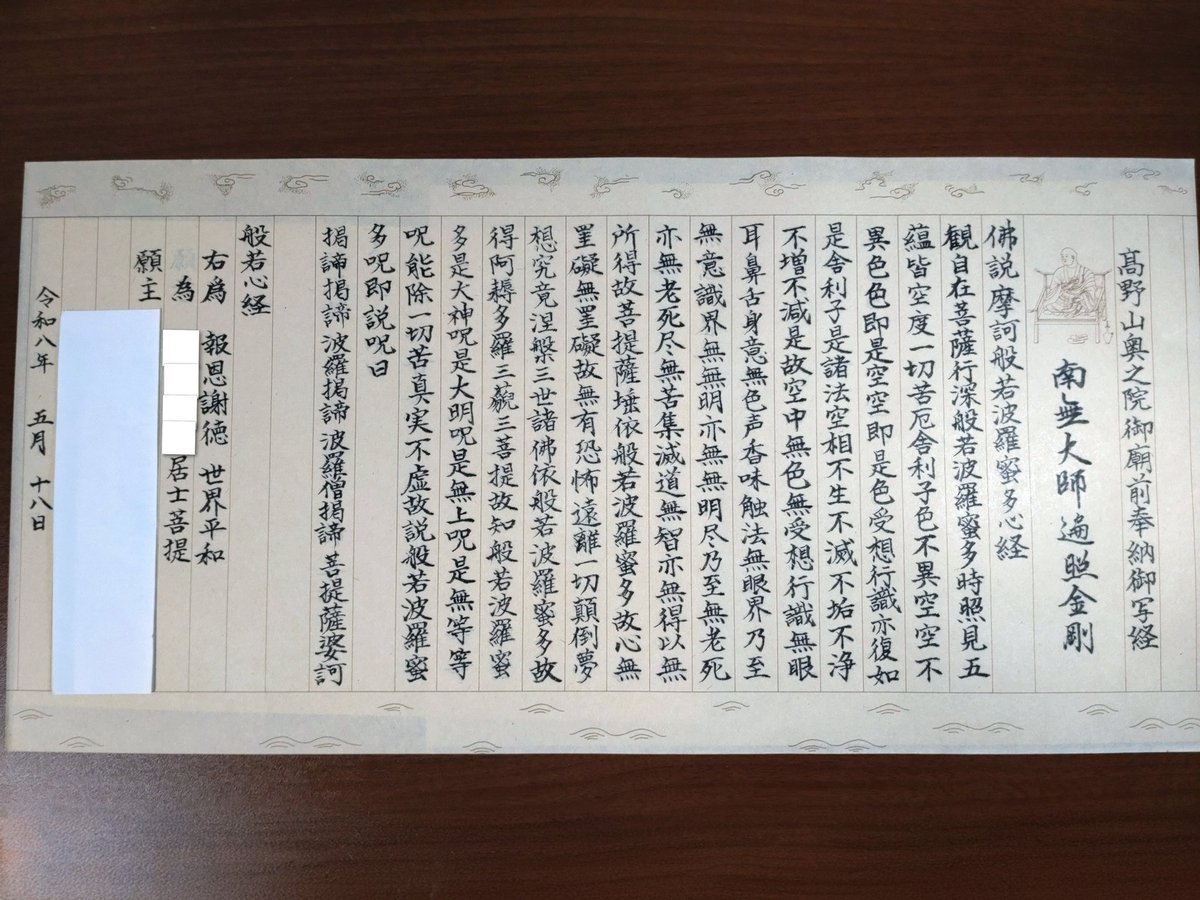 髙野山奥之院御廟前奉納御写経
南無大師遍照金剛
佛説摩訶般若波羅蜜多心経
観自在菩薩行深般若波羅蜜多時照見五
蘊皆空度一切苦厄舎利子色不異空空不
異色色即是空空即是色受想行識亦復如
是舎利子是諸法空相不生不滅不垢不浄
不増不減是故空中無色無受想行識無眼
耳鼻舌身意無色声香味触法無眼界乃至
無意識界無無明亦無無明尽乃至無老死
亦無老死尽無苦集滅道無智亦無得以無
所得故菩提薩埵依般若波羅蜜多故心無
罣礙無罣礙故無有恐怖遠離一切顛倒夢
想究竟涅槃三世諸佛依般若波羅蜜多故
得阿耨多羅三藐三菩提故知般若波羅蜜
多是大神呪是大明呪是無上呪是無等等
呪能除一切苦真実不虚故説般若波羅蜜
多呪即説呪曰
掲諦掲諦波羅掲諦波羅僧掲諦菩提薩婆訶
般若心経
右為 報恩謝徳 世界平和
為 居士菩提
願主
令和八年 五月 十八日